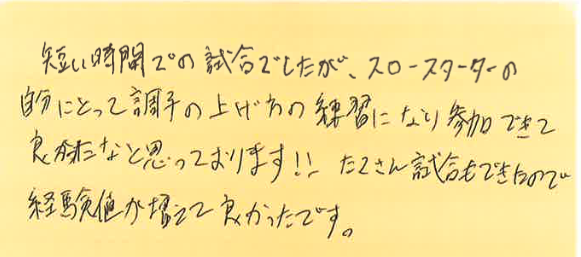 短い時間での試合でしたが、スロースターターの
自分にとって調子の上げ方の練習になり参加できて
良かったなと思っております!! たくさん試合もできたので
経験値が増えて良かったです。